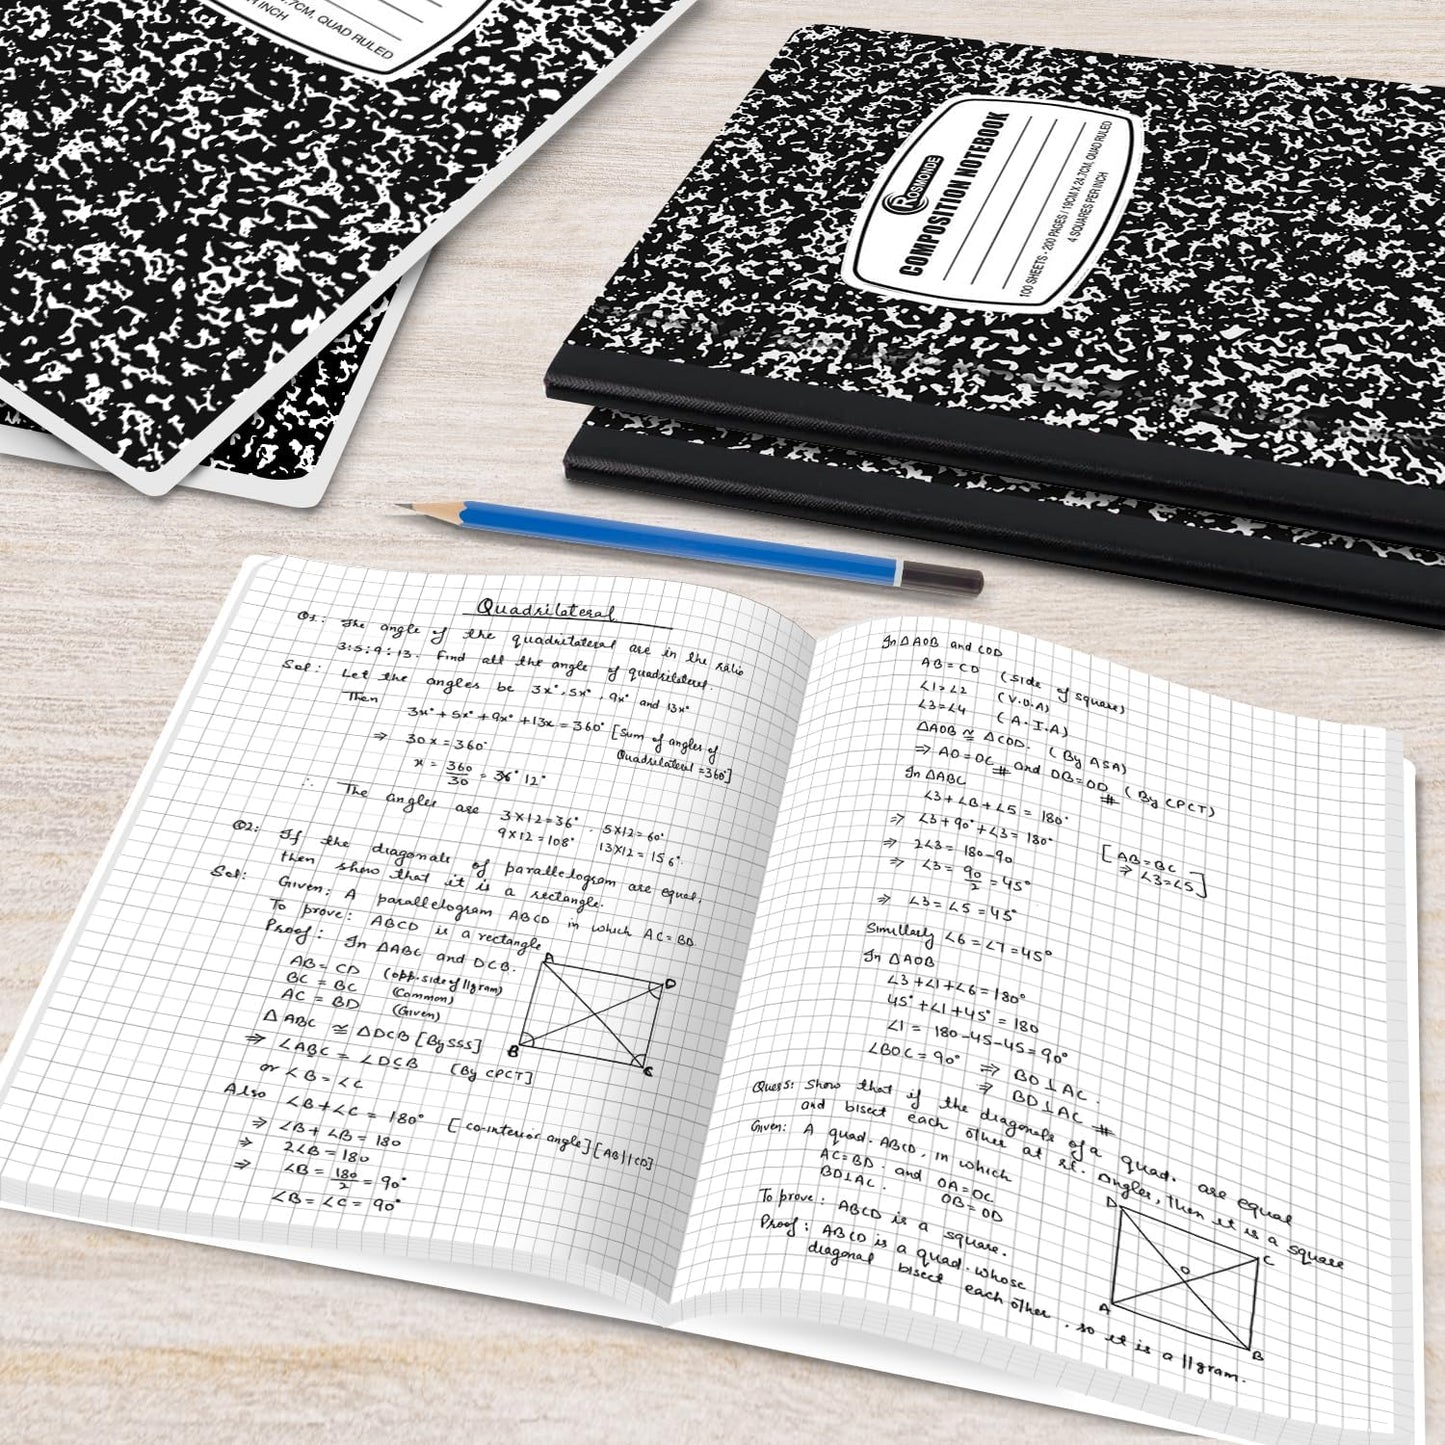 .7CM, QUAD RULED
R INCH
ROSMONDE
COMPOSITION NOTEBOOK
100 SHEETS - 200 PAGES / 19CM X 24.7CM, QUAD RULED
4 SQUARES PER INCH
Quadrilateral
Q1: The angle of the quadrilateral are in the ratio
3:5:9:13. Find all the angle of quadrilateral.
Sol: Let the angles be 3x°, 5x°, 9x° and 13x°
Then
3x° + 5x° + 9x° + 13x = 360° [Sum of angles of
Quadrilateral = 360°]
⇒ 30x = 360°
x = 360/30 = 12°
∴ The angles are 3×12=36°. 5×12=60°
9×12=108° 13×12=156°.
Q2: If the diagonals of parallelogram are equal,
then show that it is a rectangle.
Sol: Given: A parallelogram ABCD in which AC=BD
To prove: ABCD is a rectangle
Proof: In ΔABC and DCB.
AB = CD (opp. side of ||gram)
BC = BC (Common)
AC = BD (Given)
ΔABC ≅ ΔDCB [By SSS]
⇒ ∠ABC = ∠DCB [By CPCT]
or ∠B = ∠C
Also ∠B+∠C = 180° [co-interior angle] [AB||CD]
⇒ ∠B+∠B = 180
⇒ 2∠B = 180
⇒ ∠B = 180/2 = 90°
∠B = ∠C = 90°
A
D
B
C
In ΔAOB and COD
AB = CD (side of square)
∠1=∠2 (V.O.A)
∠3=∠4 (A.I.A)
ΔAOB ≅ ΔCOD. (By ASA)
⇒ AO=OC # and OB=OD # (By CPCT)
In ΔABC
∠3+∠B+∠5 = 180°
⇒ ∠3+90°+∠3 = 180°
⇒ 2∠3 = 180-90 [AB=BC
⇒ ∠3 = 90/2 = 45° ⇒ ∠3=∠5]
⇒ ∠3=∠5=45°
Simillarly ∠6=∠7=45°
In ΔAOB
∠3+∠1+∠6=180°
45°+∠1+45° = 180
∠1 = 180-45-45=90°
∠BOC = 90° ⇒ BO⊥AC.
⇒ BD⊥AC #
Ques: Show that if the diagonals of a quad. are equal
and bisect each other at rt. angles, then it is a square
Given: A quad. ABCD, in which
AC=BD. and OA=OC
BD⊥AC. OB=OD
To prove: ABCD is a square.
Proof: ABCD is a quad. whose
diagonal bisect each other. so it is a ||gram.
D
C
O
A
B